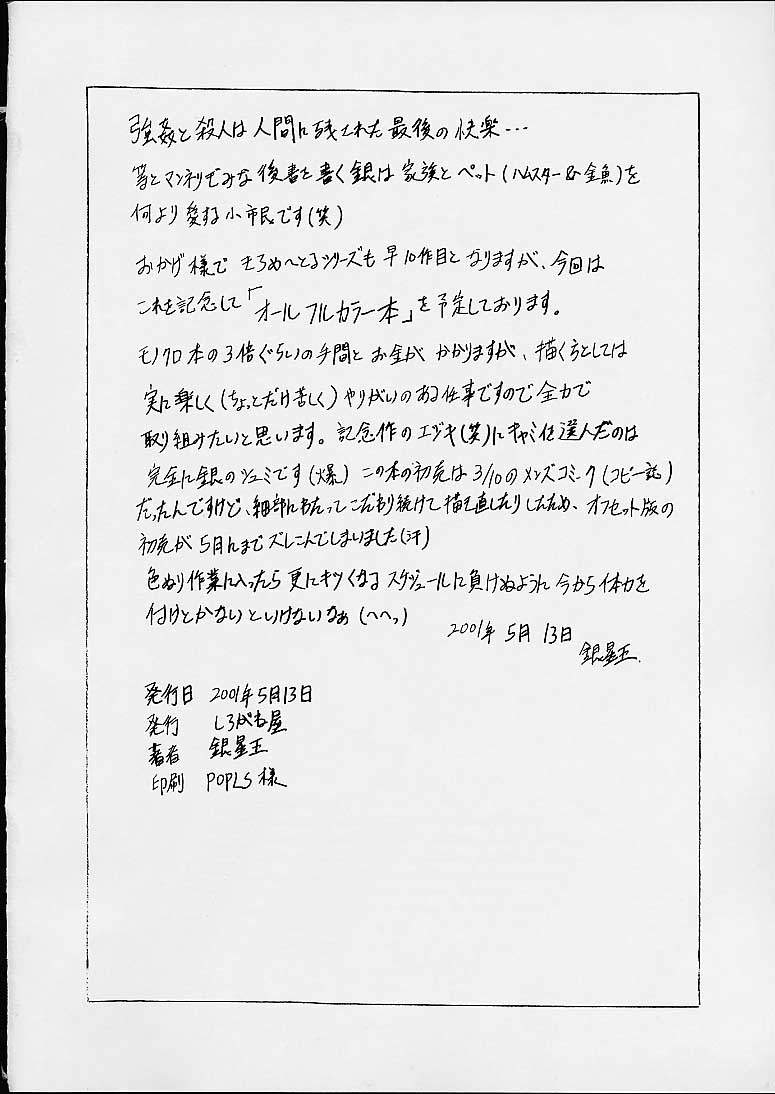 強姦と殺人は人間に残された最後の快楽…
等とマンネリぎみな後書を書く銀は家族とペット(ハムスター&金魚)を
何より愛する小市民です(笑)
おかげ様で せるめへとるシリーズも早10作目となりますが、今回は
これを記念して「オールフルカラー本」を予定しております。
モノクロ本の3倍ぐらいの手間とお金がかかりますが、描く方としては
実に楽しく(ちょっとだけ苦しく)やりがいのある仕事ですので全力で
取り組みたいと思います。記念作のエジキ(笑)にキャミィを選んだのは
完全に銀のシュミです(爆) この本の初売は3/10のメンズコミーク(コピー誌)
だったんですけど、細部にわたってこだわり続けて描き直したりしたため、オフセット版の
初売が5月にまでズレこんでしまいました(汗)
色ぬり作業に入ったら更にキツくなるスケジュールに負けぬように今から体力を
付けとかないといけないなぁ(へへっ)
2001年 5月 13日
銀星王.
発行日 2001年5月13日
発行 しろがね屋
著者 銀星王
印刷 POPLS様